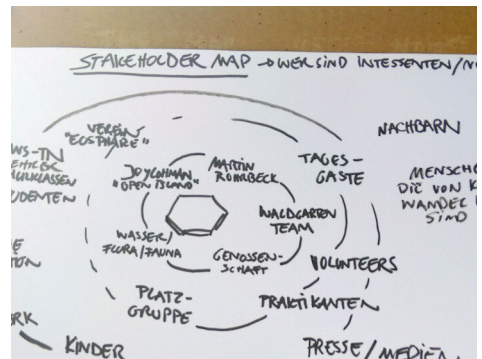 STAKEHOLDER MAP → WER SIND INTESSENTEN/
VEREIN
"ECOSPHÄRE"
NACHBARN
WS-TN
ULKLASSEN
UDENTEN
"OPEN ISLAND"
MARTIN
ROHRBECK
TAGES-
GÄSTE
MENSCH
DIE VON K
WANDEL
SIND
WASSER/
FLORA/FAUNA
WALDGARTEN
TEAM
GENOSSEN-
SCHAFT
VOLUNTEERS
PLATZ-
GRUPPE
PRAKTIKANTEN
ERK
KINDER
PRESSE/MEDIEN